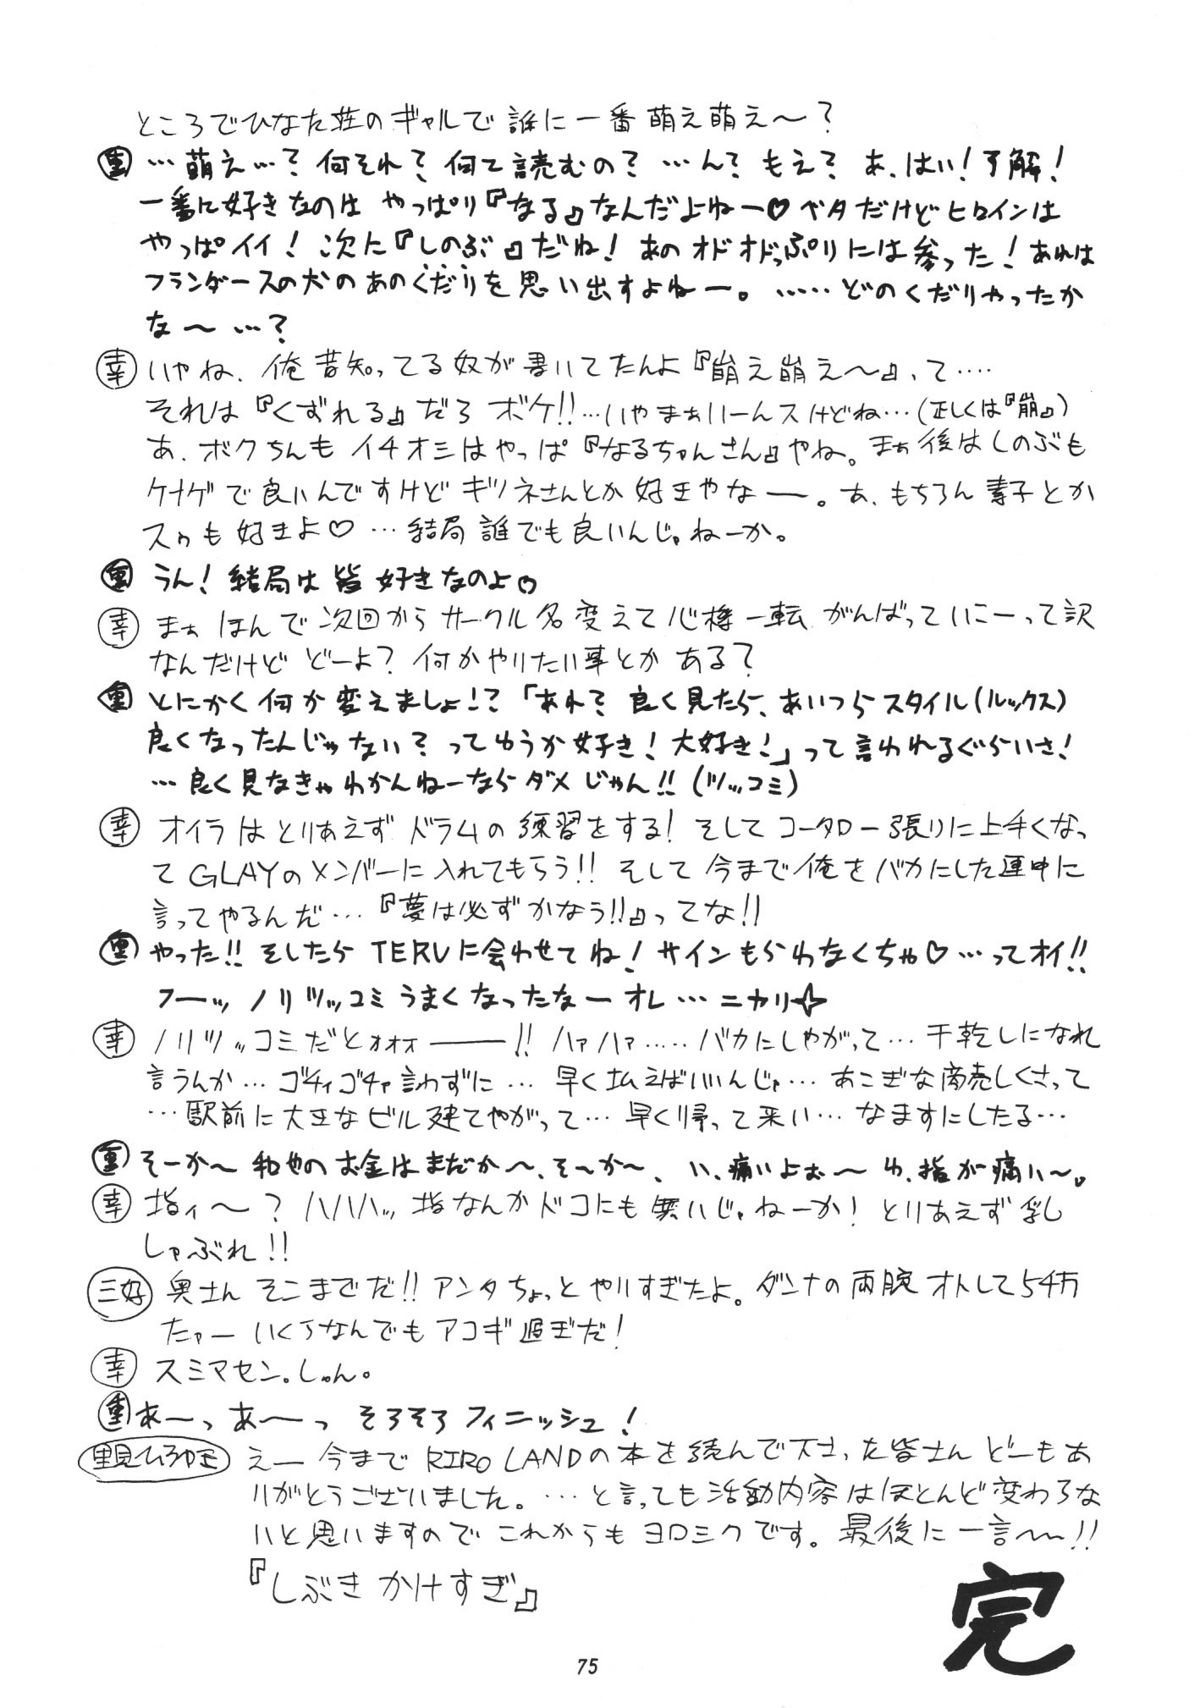 ところでひなた荘のギャルで誰に一番萌え萌え〜?
…萌え…?何それ?何て読むの?…ん?もえ?あ、はい!了解!
一番に好きなのはやっぱり『なる』なんだよねー♡ベタだけどヒロインは
やっぱイイ!次に『しのぶ』だね!あのオドオドっぷりには参った!あれは
フランダースの犬のあのくだりを思い出すよねー。……どのくだりやったか
な〜…?
幸 いやね、俺昔知ってる奴が書いてたんよ『崩え崩え〜』、て‥‥
それは『くずれる』だろボケ!!…いやまぁいーんスけどね…(正しくは『崩』)
あ、ボクちんもイチオシはやっぱ『なるちゃんさん』やね。まぁ後はしのぶも
ケナゲで良いんですけどキツネさんとか好きやなー。あ、もちろん素子とか
スゥも好きよ♡…結局誰でも良いんじゃねーか。
うん!結局は皆好きなのよ♡
幸 まぁほんで次回からサークル名変えて心機一転がんばっていこーって訳
なんだけどどーよ?何かやりたい事とかある?
とにかく何か変えましょ!?「あれ?良く見たら、あいつらスタイル(ルックス)
良くなったんじゃない?ってゆうか好き!大好き!」って言われるぐらいさ!
…良く見なきゃわかんねーならダメじゃん!!(ツッコミ)
幸 オイラはとりあえずドラムの練習をする!そしてコータロー張りに上手くなっ
てGLAYのメンバーに入れてもらう!!そして今まで俺をバカにした連中に
言ってやるんだ…『夢は必ずかなう!!』ってな!!
やった!!そしたらTERUに会わせてね!サインもらわなくちゃ♡…ってオイ!!
フーッノリツッコミうまくなったなーオレ…ニカリ☆
幸 ノリツッコミだとォォォ―――!!ハァハァ……バカにしやがって…干乾しになれ
言うんか…ゴチィゴチャ言わずに…早く払えばいいんじゃ…あこぎな商売しくさって
…駅前に大きなビル建てやがって…早く帰って来い…なますにしたる…
そーか〜和也のお金はまだか〜、そ〜か〜、い、痛いよぉ〜ゆ、指が痛い〜。
幸 指ィ〜?ハハハッ、指なんかドコにも無いじゃねーか!とりあえず乳
しゃぶれ!!
三好 奥さんそこまでだ!!アンタちょっとやりすぎたよ。ダンナの両腕オトして5千万
たァーいくらなんでもアコギ過ぎだ!
幸 スミマセン。しゅん。
あーっあ〜っそろそろフィニッシュ!
里見ひろゆき えー今までRIRO LANDの本を読んで下さった皆さんどーもあ
りがとうございました。…と言っても活動内容はほとんど変わらな
いと思いますのでこれからもヨロシクです。最後に一言〜!!
『しぶきかけすぎ』
完
75